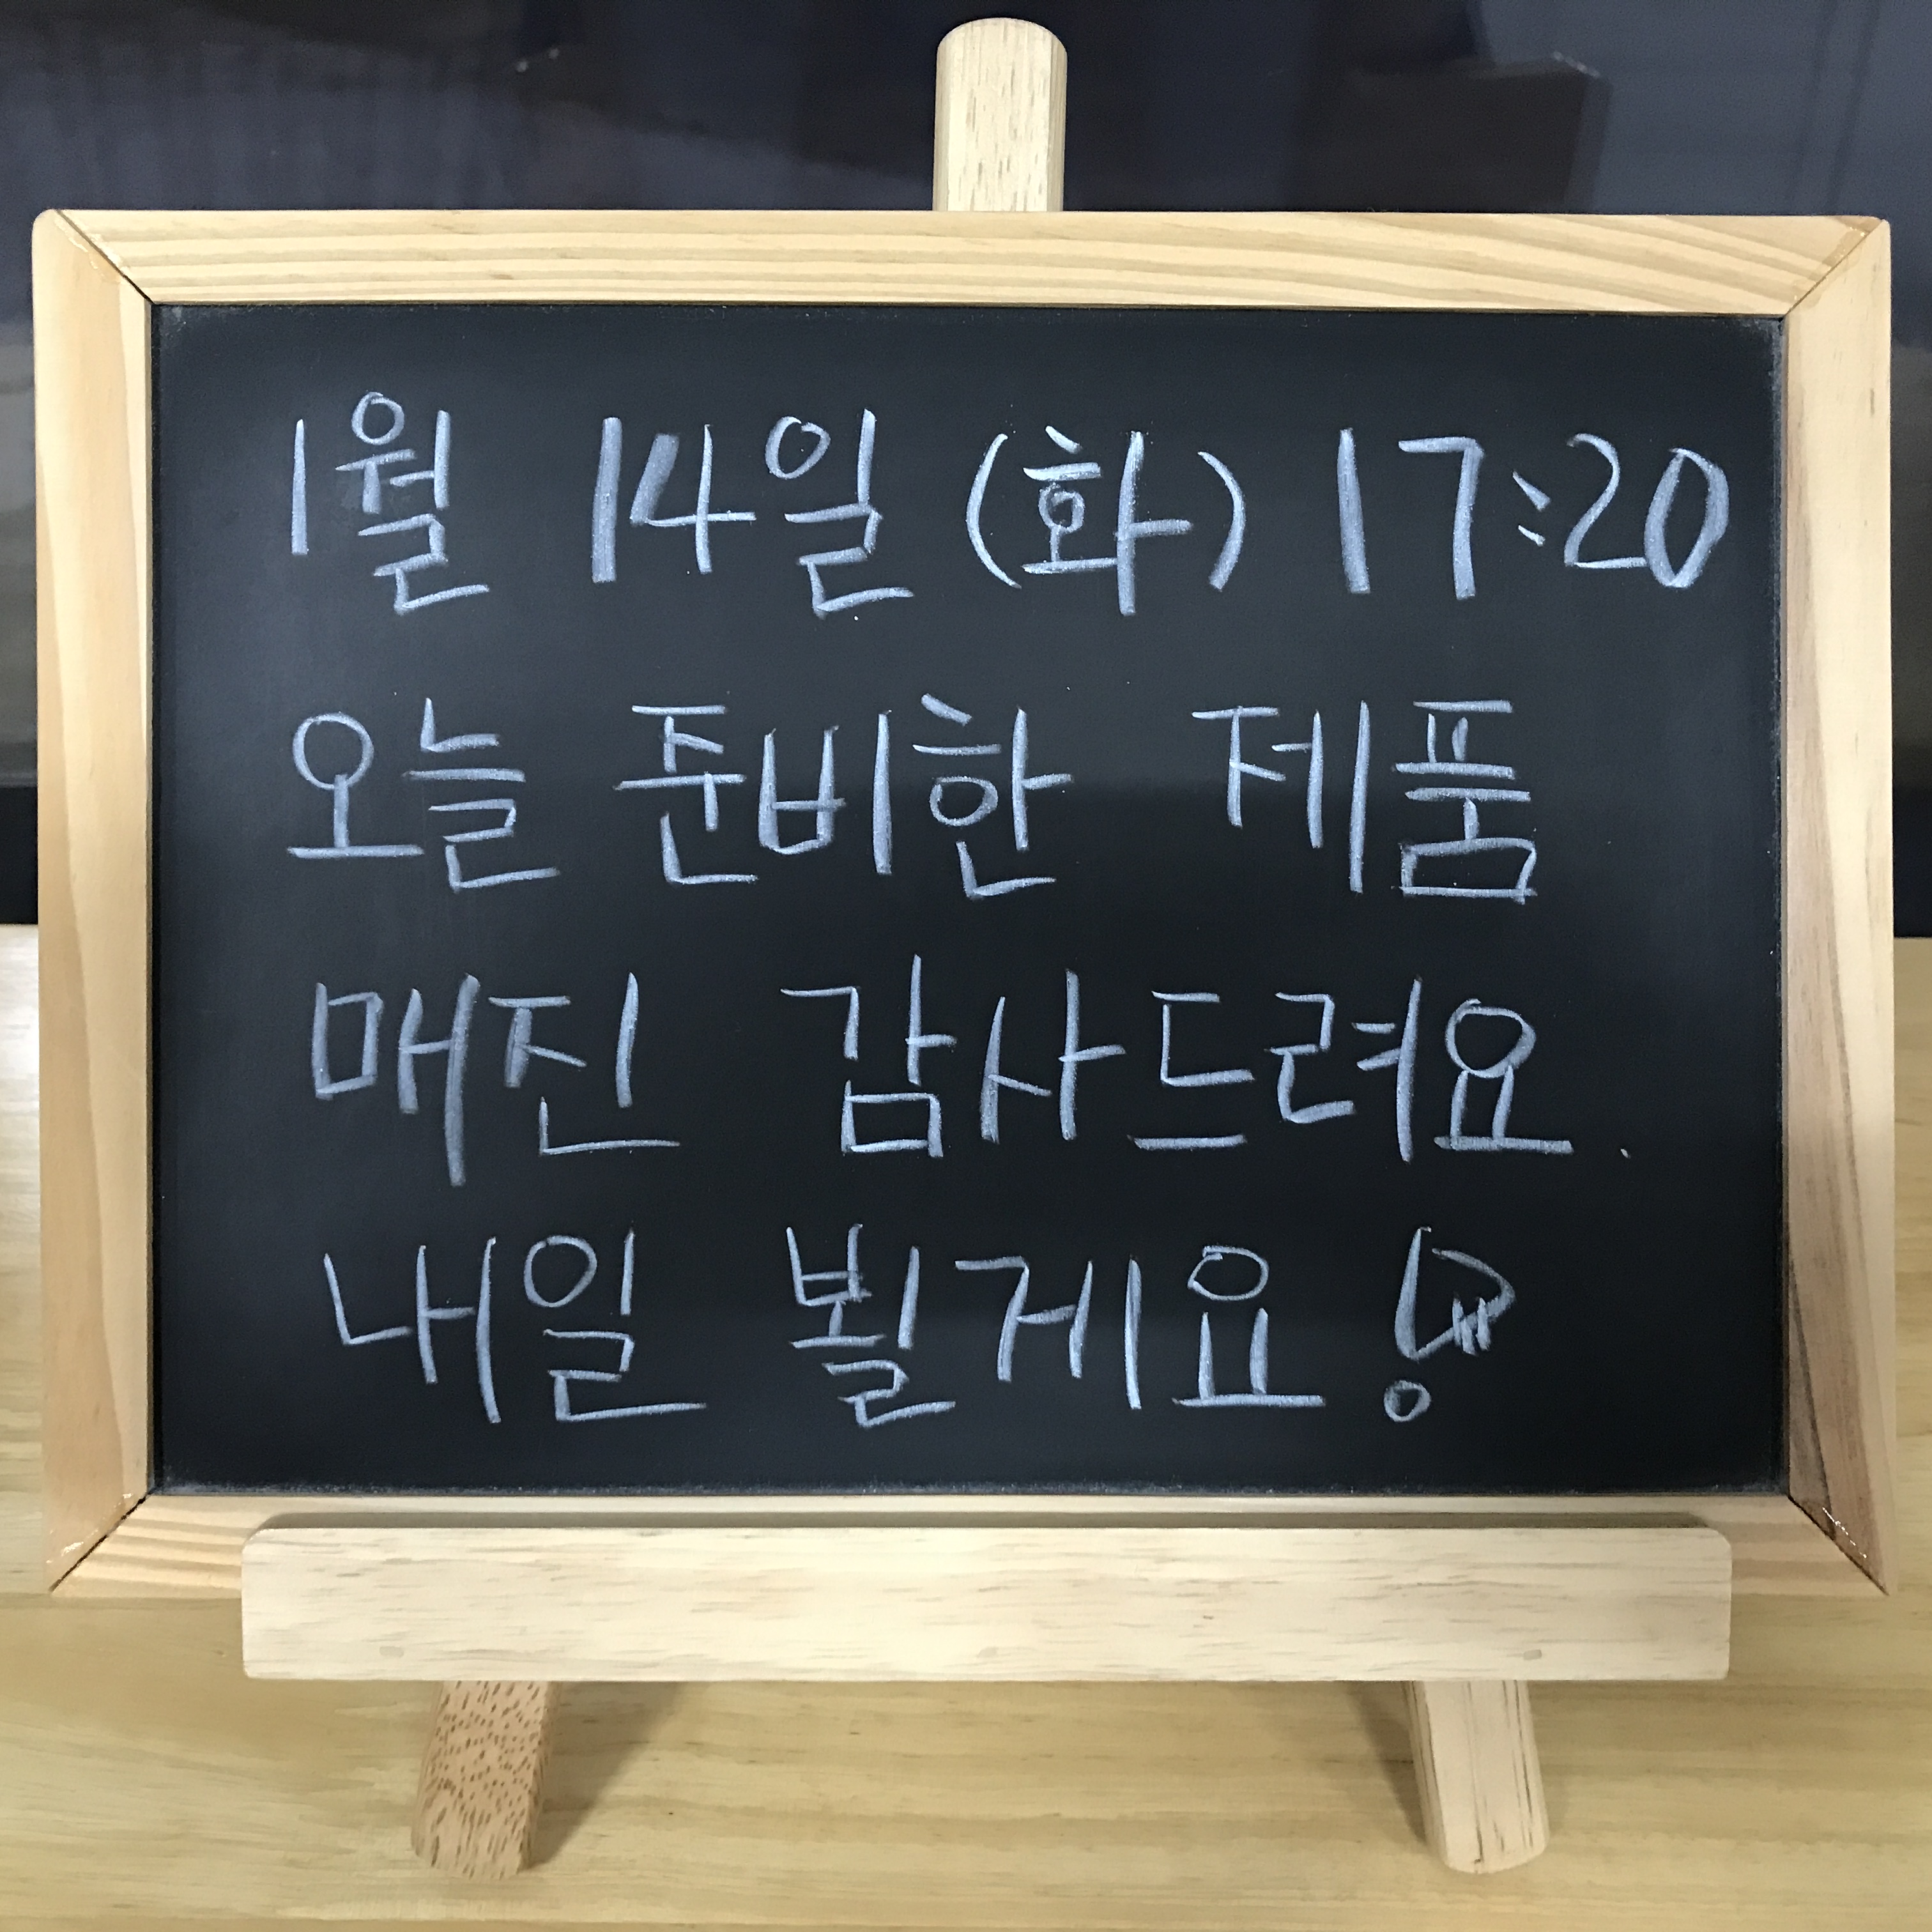 1월 14일 (화) 17:20
오늘 준비한 제품
매진 감사드려요.
내일 뵐게요!